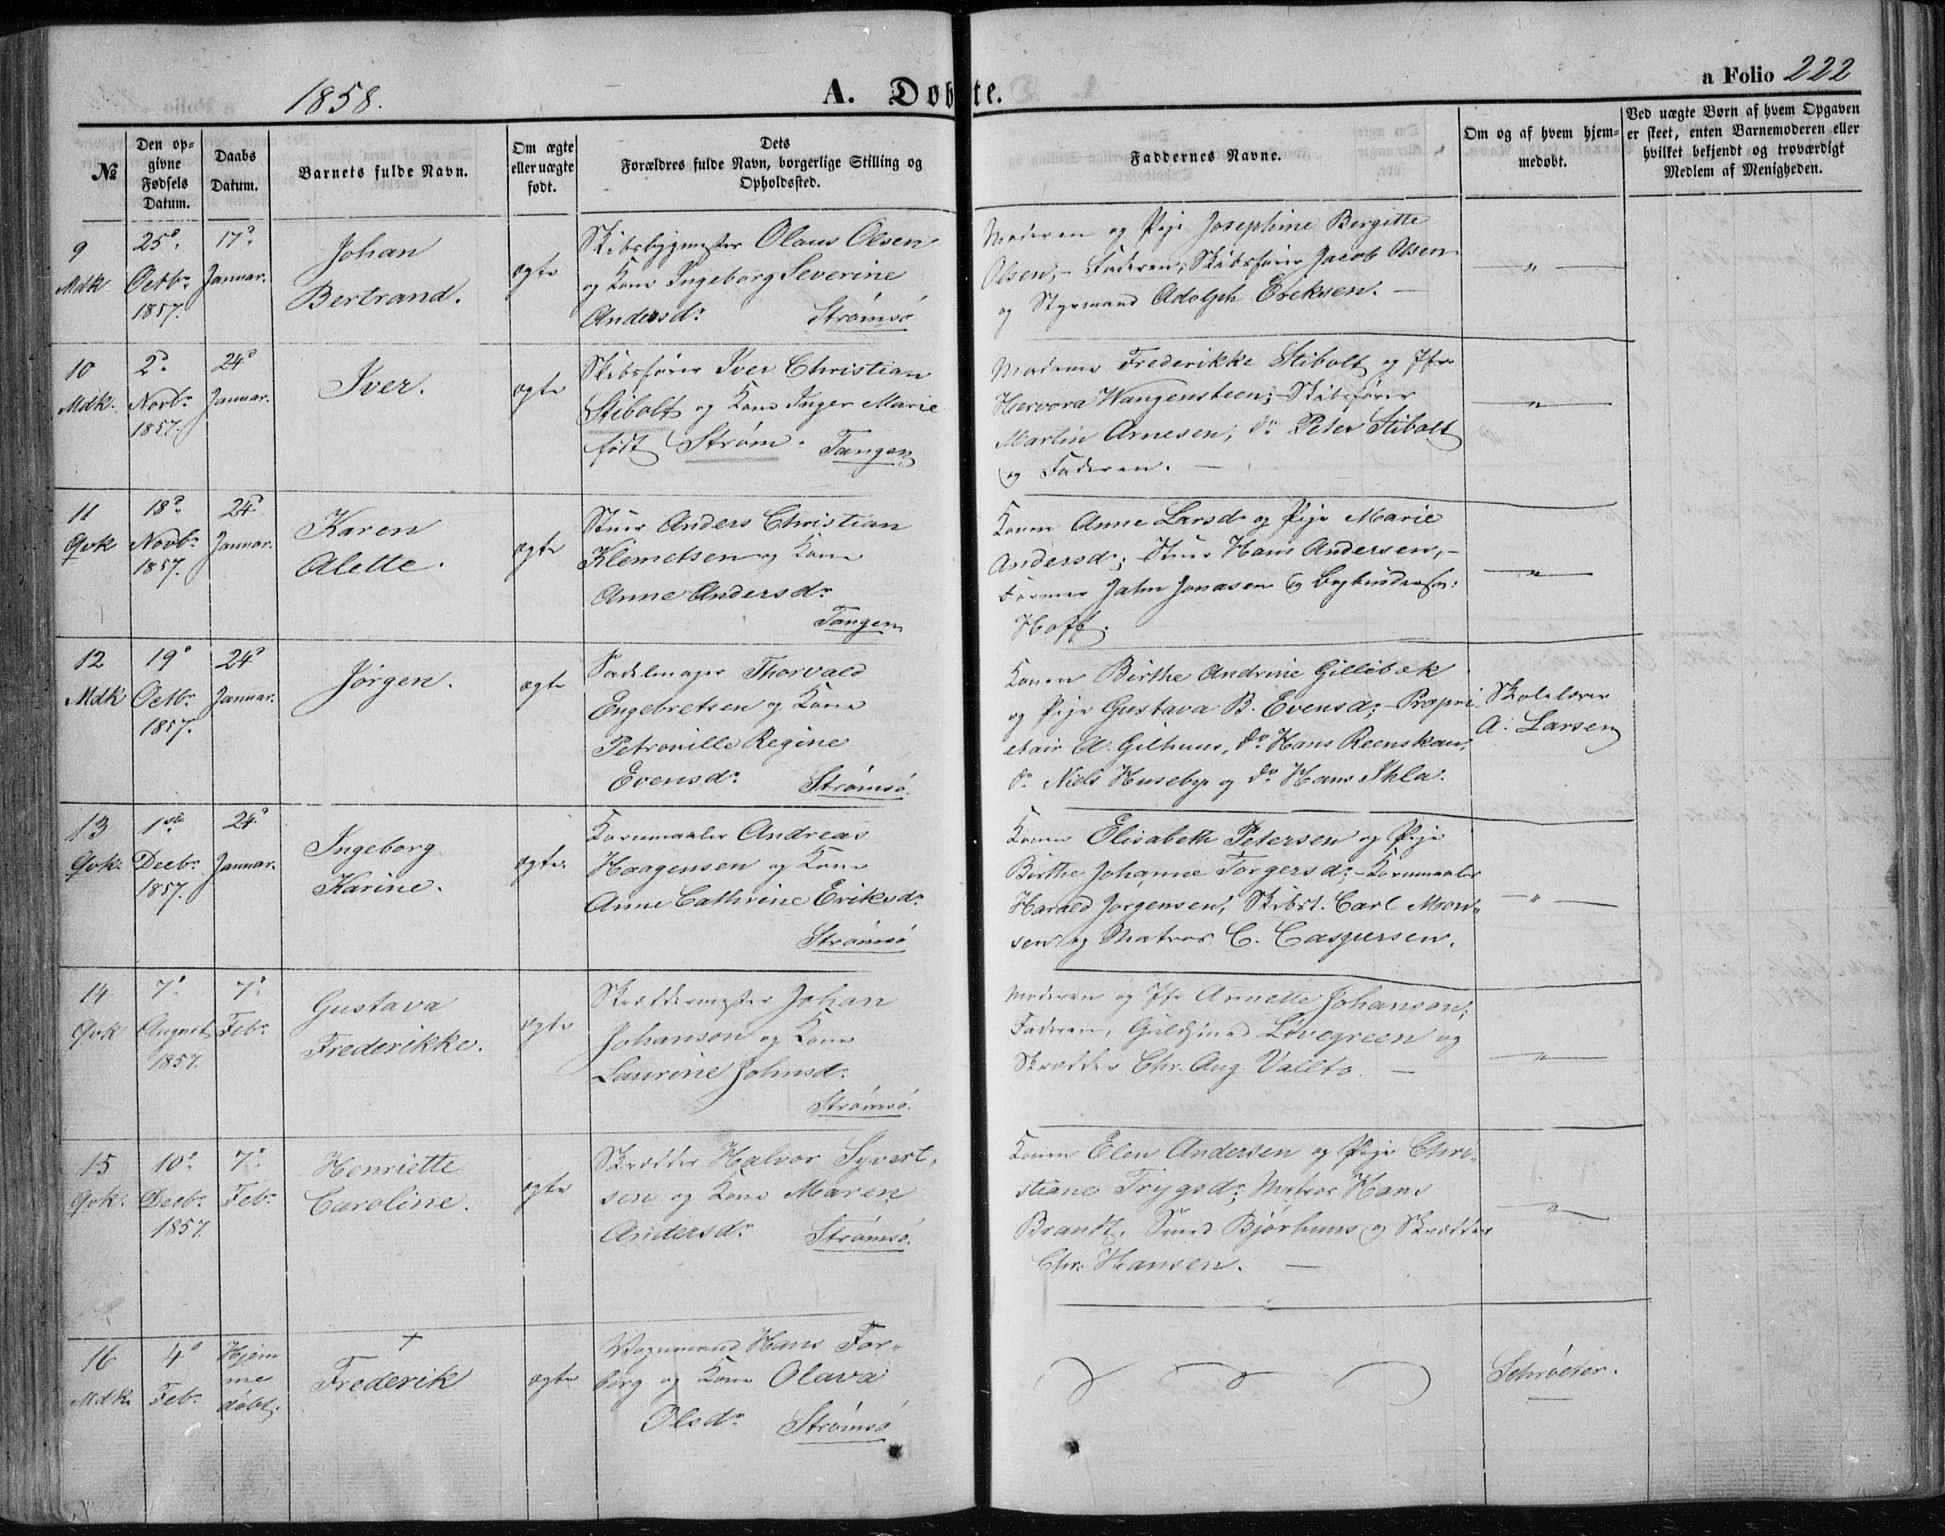 1858.
A. Døbte.
a Folio 222
№
Den op-
givne
Fødsels
Datum.
Daabs
Datum.
Barnets fulde Navn.
Om ægte
eller uægte
født.
Dets
Forældres fulde Navn, borgerlige Stilling og
Opholdssted.
Faddernes Navne.
Om og af hvem hjem-
medøbt.
Ved uægte Børn af hvem Opgaven
er skeet, enten Barnemoderen eller
hvilket bekjendt og troværdigt
Medlem af Menigheden.
9
Mdk
25d
Octbr
1857.
17d
Januar.
Johan
Bertrand.
ægte
Skibsbygmester Olaus Olsen
og Kone Ingeborg Severine
Andersdr Strømsø
Moderen og Pige Josephine Bergitte
Olsen; – Faderen, Skibsfører Jacob Olsen
og Styrmand Adolph Ericksen. –
– " –
10
Mdk.
2d
Novbr
1857.
24d
Januar.
Iver.
ægte
Skibsfører Iver Christian
Stibolt og Kone Inger Marie
født Strøm. Tangen
Madame Frederikke Stibolt og Jfr
Hervora Wangensteen; Skibsfører
Martin Arnesen; do Peter Stibolt
og Faderen. –
– " –
11
Qvk
18d
Novbr
1857.
24d
Januar.
Karen
Alette.
ægte
Stuer Anders Christian
Klemetsen og Kone
Anne Andersdr
Tangen
Konen Anne Larsd og Pige Marie
Andersdr; Stuer Hans Andersen, –
Former Jahn Jonasen og Bogbinder
Hoff.
– " –
12
Mdk
19d
Octbr
1857.
24d
Januar.
Jørgen.
ægte
Sadelmager Thorvald
Engebretsen og Kone
Petronille Regine
Evensdr Strømsø.
Konen Birthe Andrine Gillebek
og Pige Gustava B. Evensd; – Propri
etair A. Gilhuus, do Hans Reenskau,
do Niels Huseby og do Hans Ihla.
Skolelærer
A. Larsen
13
Qvk.
1ste
Decbr
1857.
24d
Januar.
Ingeborg
Karine.
ægte.
Kornmaaler Andreas
Haagensen og Kone
Anne Cathrine Eriksdr
Strømsø
Konen Elisabeth Petersen og Pige
Birthe Johanne Torgersd; – Kornmaaler
Harald Jørgensen, Skibst. Carl Mon-
sen og Matros C. Caspersen.
– " –
14
Qvk
7d
August
1857.
7d
Febr
Gustava
Frederikke.
ægte
Skræddermester Johan
Johanson og Kone
Laurine Johnsd.
Strømsø.
Moderen og Jfr Annette Johanson;
Faderen, Guldsmed Lövegreen og
Skrædder Chr. Aug. Vallto. –
– " –
15
Qvk.
10d
Decbr
1857.
7d
Febr
Henriette
Caroline.
ægte
Skrædder Halvor Syvert-
sen og Kone Maren
Andersdr Strømsø.
Konen Elen Andersen og Pige Chri-
stiane Trygsdr; Matros Hans
Brandt, Smed Bjørhuus og Skrædder
Chr. Hansen. –
– " –
16
Mdk
4d
Febr
Hjem
me
døbt.
+
Frederik
ægte
Vognmand Hans Tor-
berg og Kone Olava
Olsdr Strømsø
Schrøeter.